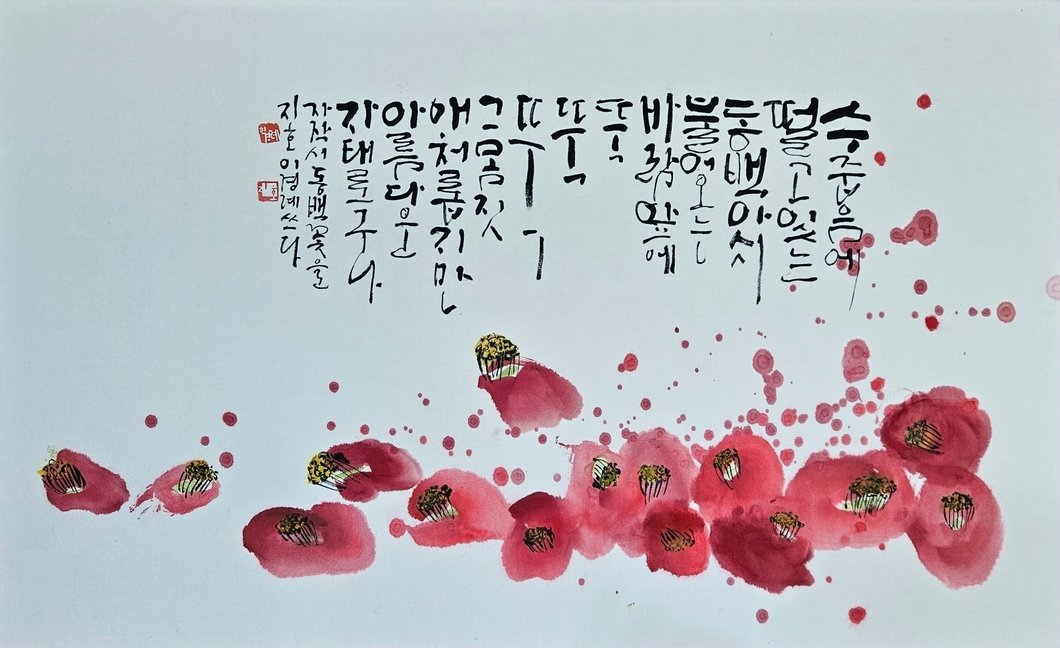 수줍음에
떨고 있는
동백아시
불어오는
바람앞에
뚝
뚝
뚜ㄱ
그 몸짓
애처롭지만
아름다운
자태로구나
자작시 동백꽃을
지호 이경례 쓰다